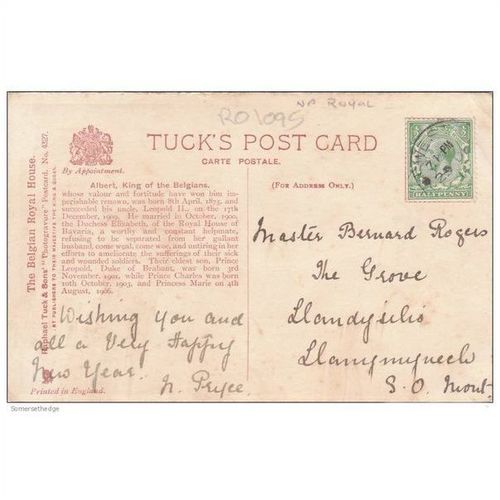 NP ROYAL
RO1095
TUCK'S POST CARD
CARTE POSTALE.
By Appointment.
(FOR ADDRESS ONLY.)
HALF PENNY
The Belgian Royal House.
Raphael Tuck & Sons' "Photogravure" Postcard, No. 4327.
ART PUBLISHERS TO THEIR MAJESTIES THE KING & QUEEN.
Albert, King of the Belgians,
whose valour and fortitude have won him im-
perishable renown, was born 8th April, 1875, and
succeeded his uncle, Leopold II., on the 17th
December, 1909. He married in October, 1900,
the Duchess Elizabeth, of the Royal House of
Bavaria, a worthy and constant helpmate,
refusing to be separated from her gallant
husband, come weal, come woe, and untiring in her
efforts to ameliorate the sufferings of their sick
and wounded soldiers. Their eldest son, Prince
Leopold, Duke of Brabant, was born 3rd
November, 1901, while Prince Charles was born
10th October, 1903, and Princess Marie on 4th
August, 1906.
Wishing you and
all a Very Happy
New Year.
N. Pryce.
Printed in England.
Master Bernard Rogers
The Grove
Llandysilio
Llanymynech
S.O. Mont.
Somersethedge